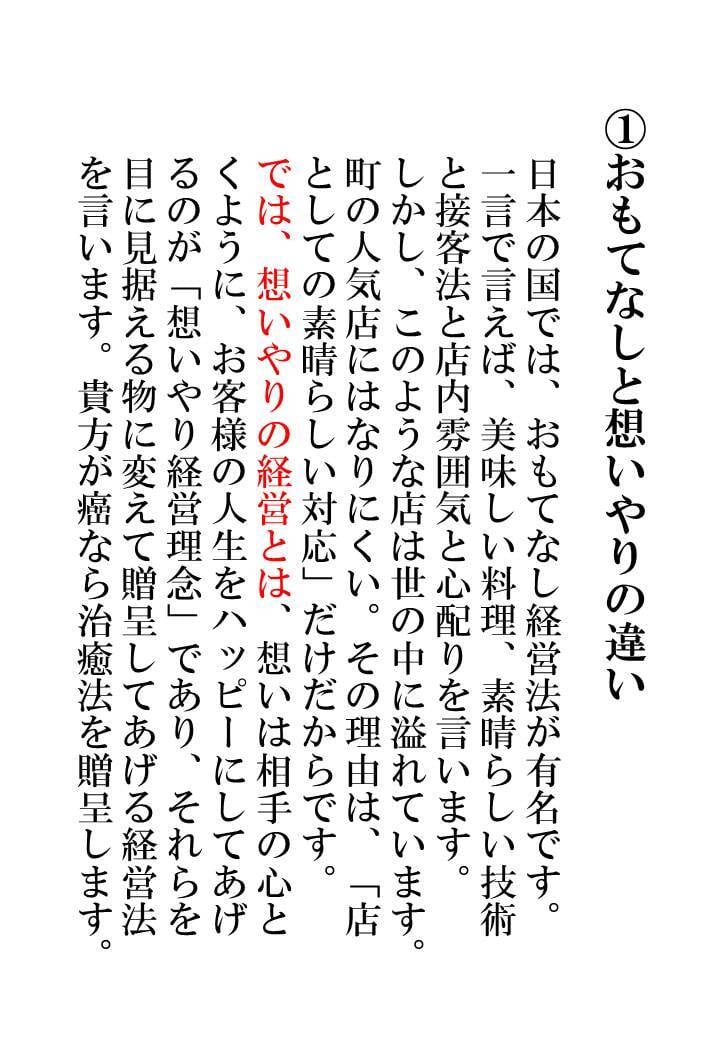 ①おもてなしと想いやりの違い
日本の国では、おもてなし経営法が有名です。
一言で言えば、美味しい料理、素晴らしい技術
と接客法と店内雰囲気と心配りを言います。
しかし、このような店は世の中に溢れています。
町の人気店にはなりにくい。その理由は、「店
としての素晴らしい対応」だけだからです。
では、想いやりの経営とは、想いは相手の心と
くように、お客様の人生をハッピーにしてあげ
るのが「想いやり経営理念」であり、それらを
目に見据える物に変えて贈呈してあげる経営法
を言います。貴方が癌なら治癒法を贈呈します。